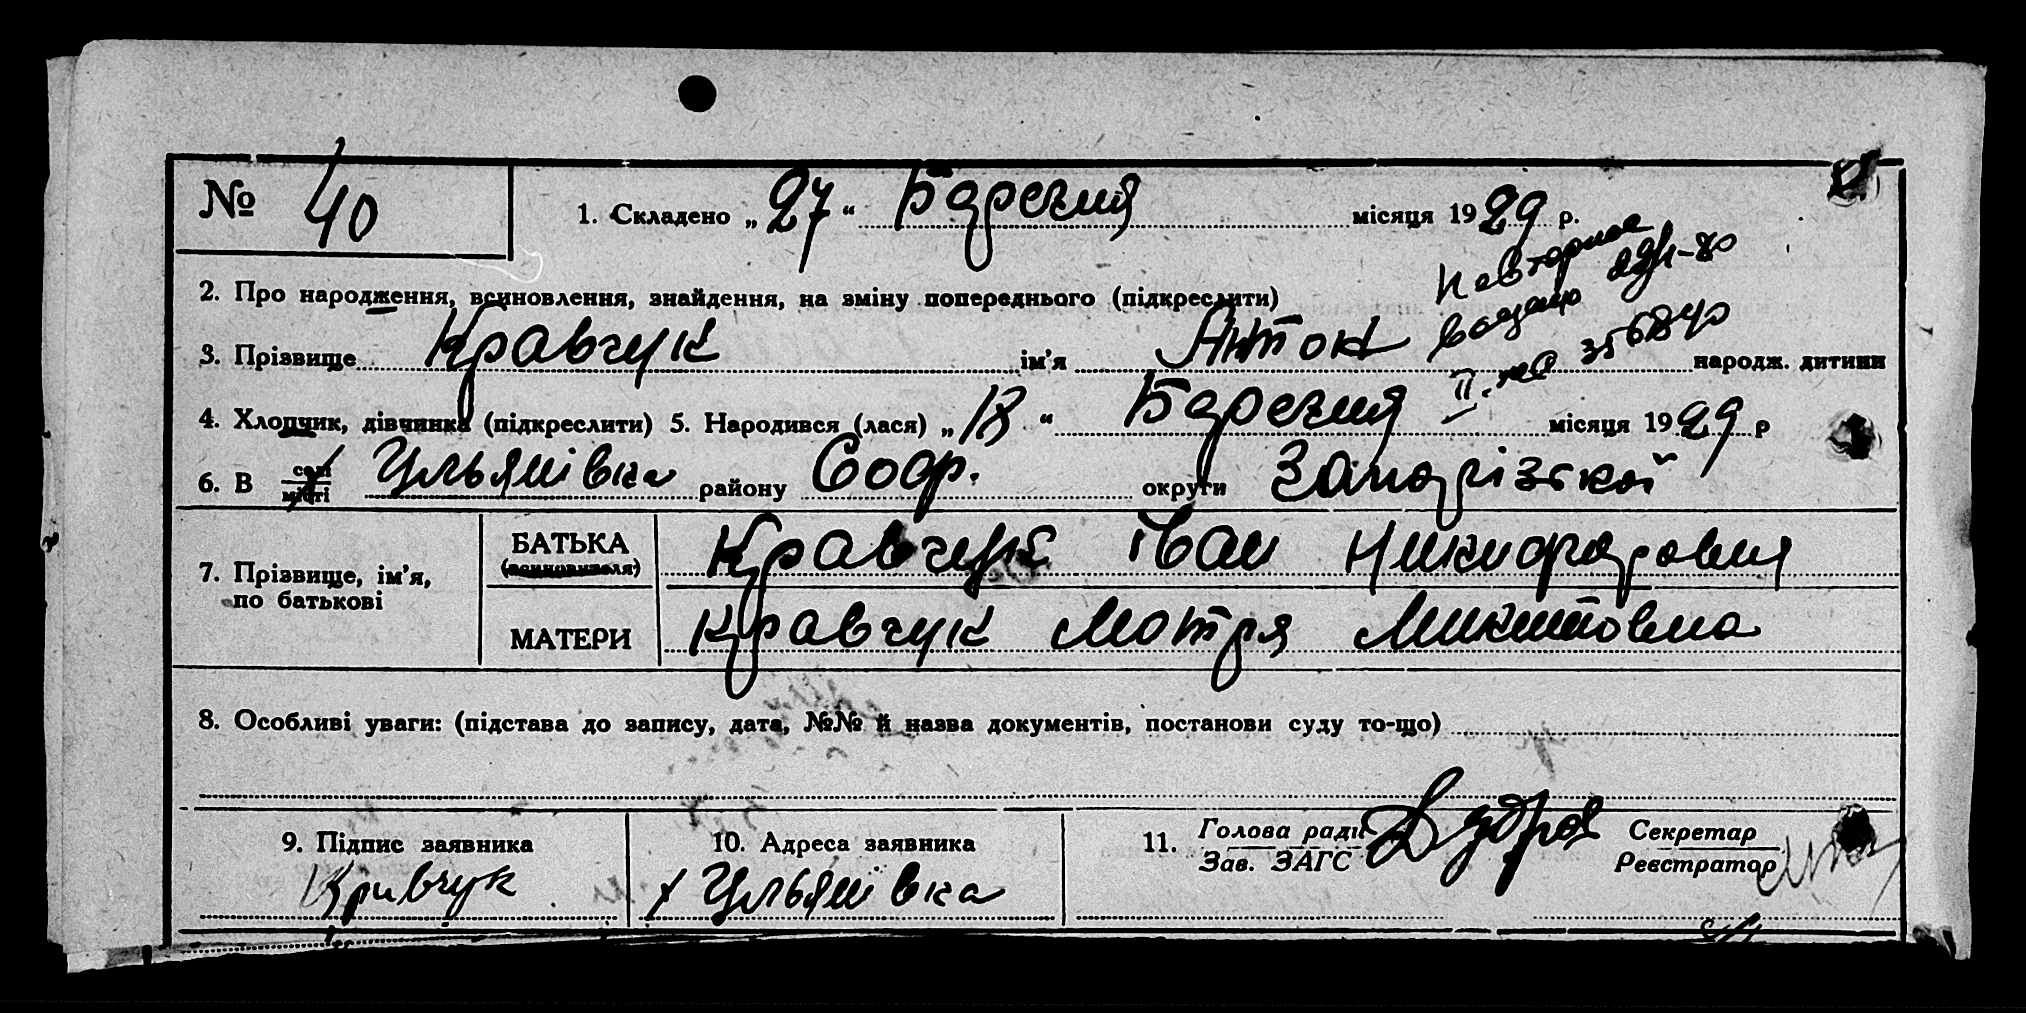 № 40 1. Складено „27“ Березня місяця 1929 р.
2. Про народження, всиновлення, знайдення, на зміну попереднього (підкреслити)
3. Прізвище Кравчук ім'я Антон народж. дитини
4. Хлопчик, дівчинка (підкреслити) 5. Народився (лася) „18“ Березня місяця 1929 р
6. В селі місті Ульянівка району Соф. округи Запорізької
7. Прізвище, ім'я, по батькові
БАТЬКА (всиновителя) Кравчук Іван Никифорович
МАТЕРИ Кравчук Мотря Микитовна
8. Особливі уваги: (підстава до запису, дата, №№ й назва документів, постанови суду то-що)
9. Підпис заявника 10. Адреса заявника 11. Голова ради Зав. ЗАГС Секретар Реєстратор
Кравчук х Ульянівка